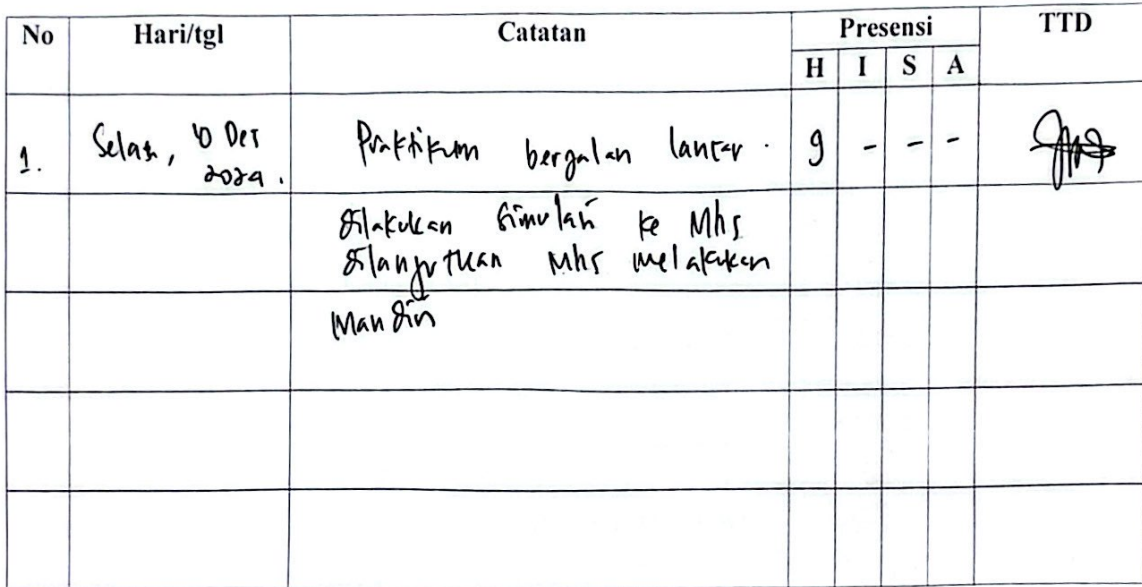 No Hari/tgl Catatan Presensi TTD
H I S A
1. Selasa, 10 Des 2024. Praktikum berjalan lancar. 9 - - -
dilakukan simulasi ke Mhs
dilanjutkan Mhs melakukan
Mandiri